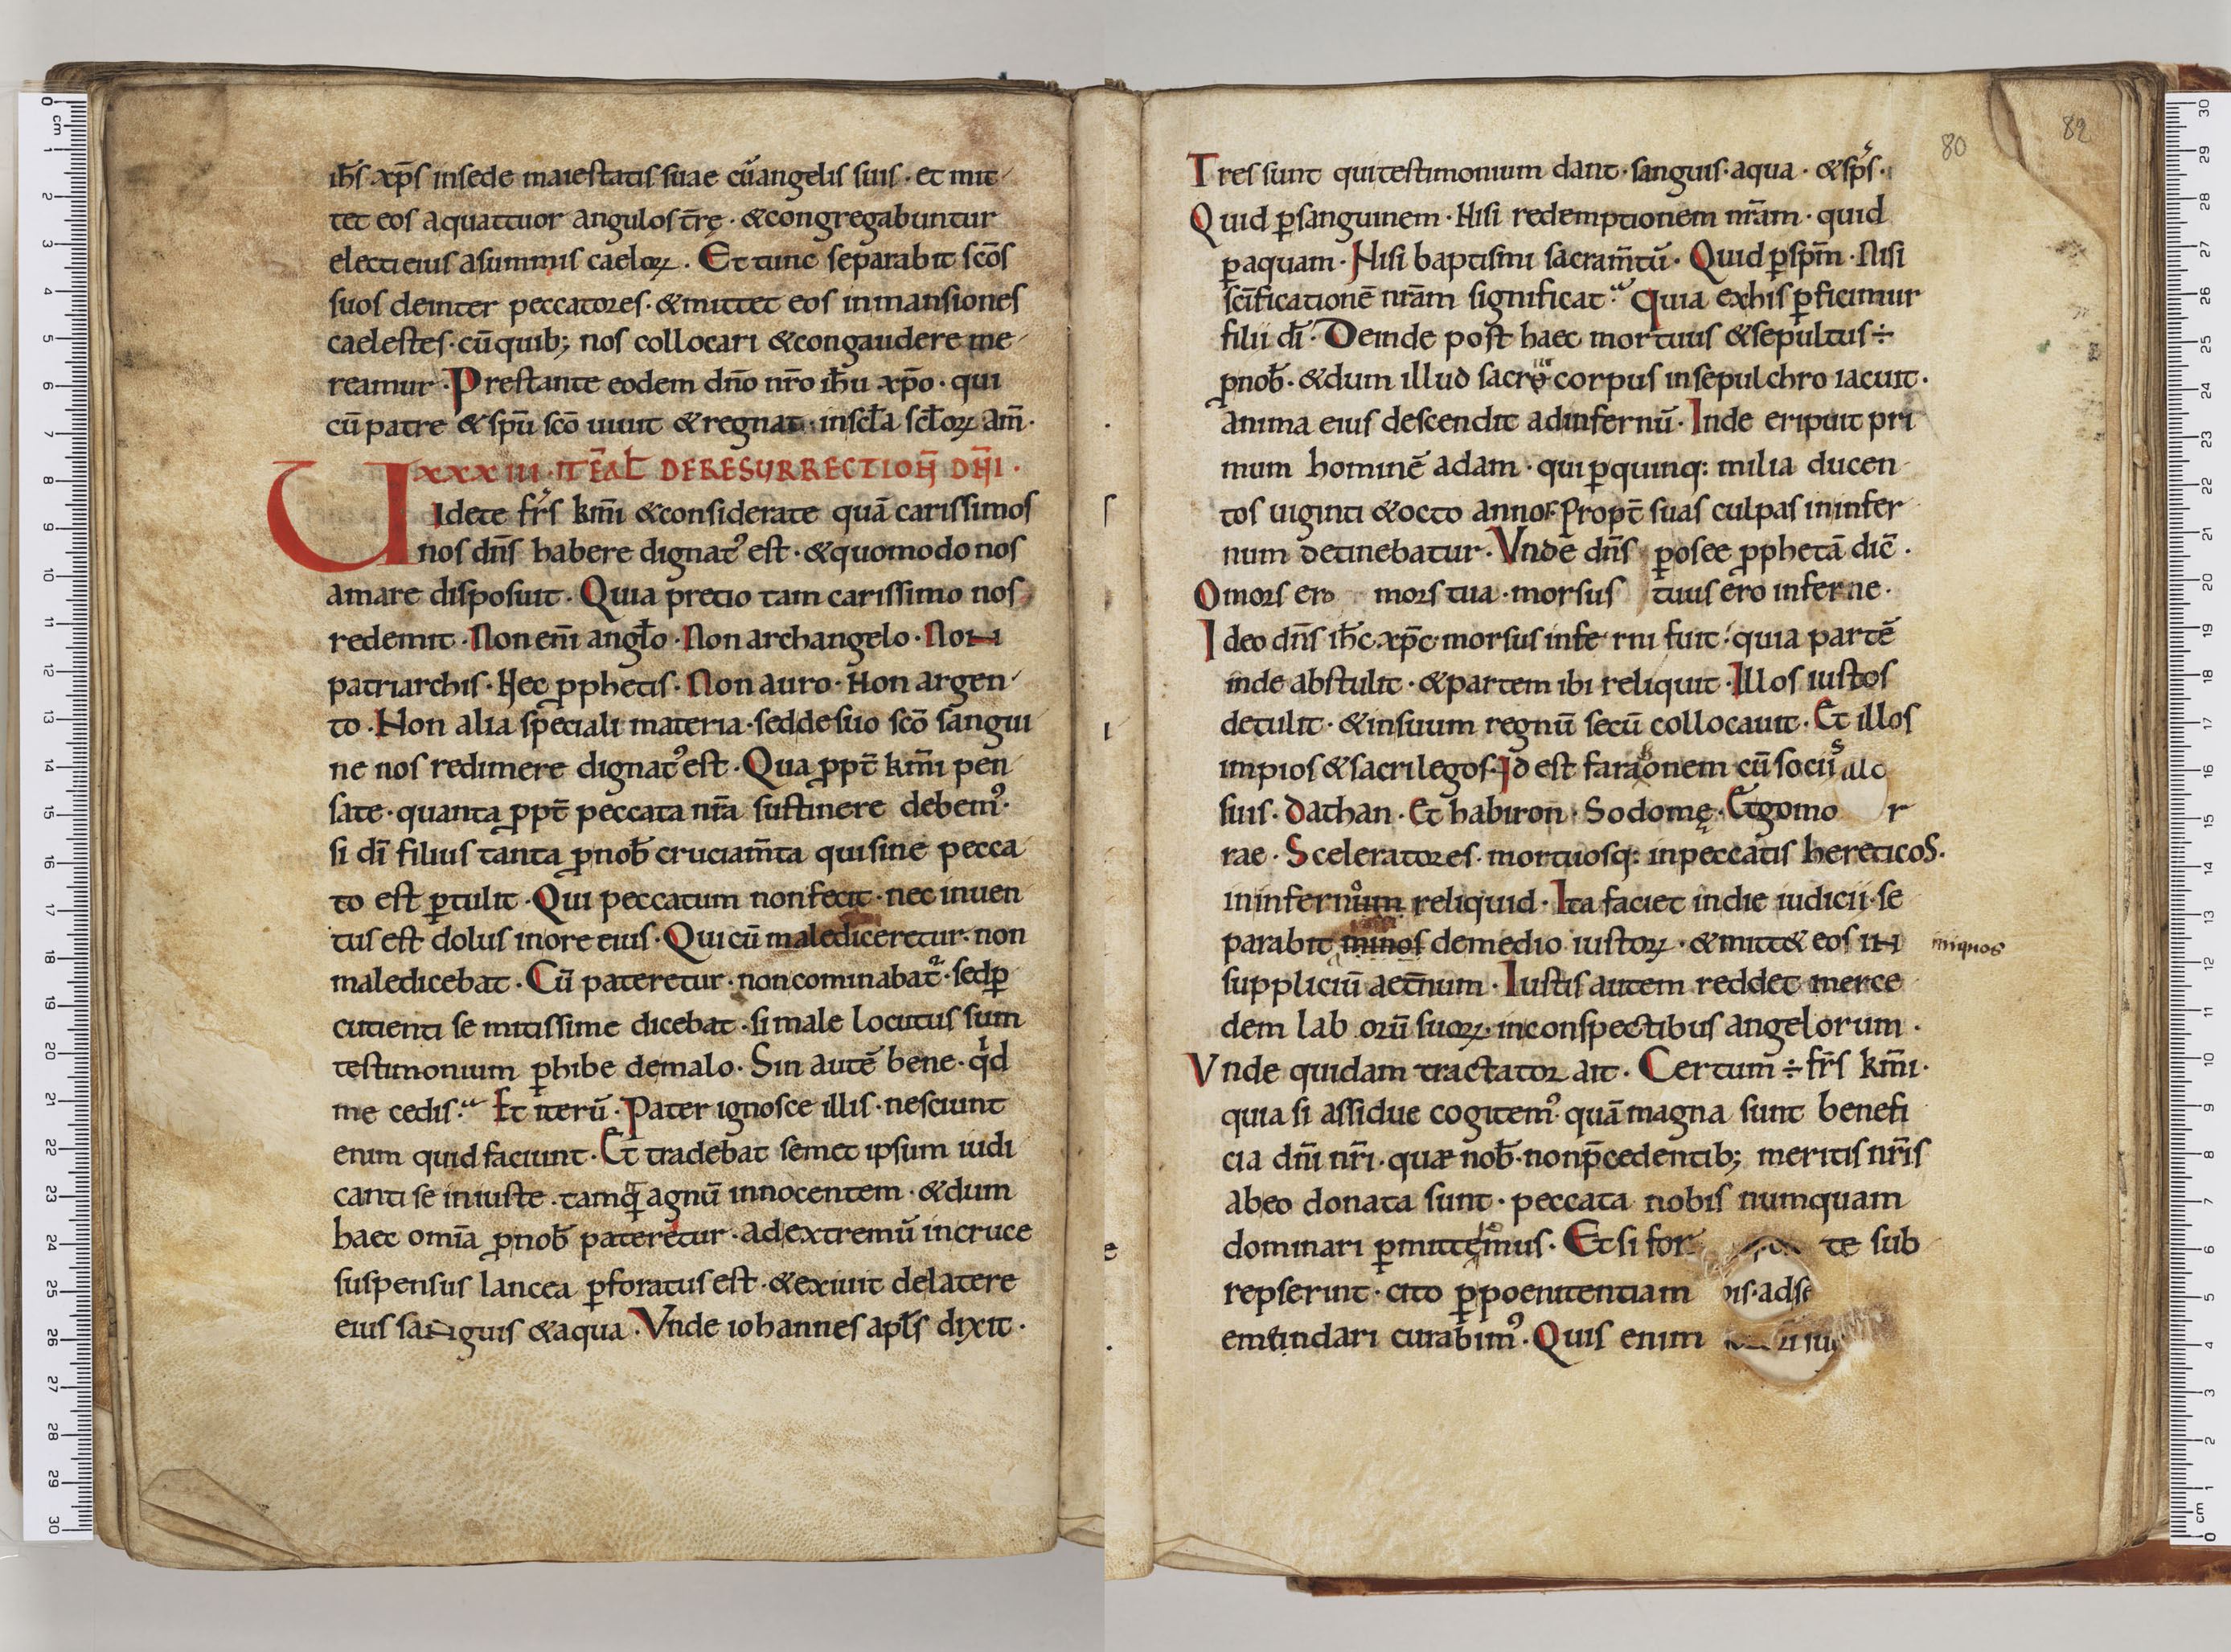 ih̄s xp̄s insede maiestatis suae cū angelis suis · et mit
tet eos aquattuor angulos tr̄ę · &congregabuntur
electi eius asummis caeloꝝ . Et tunc separabit sc̄os
suos deinter peccatores · &mittet eos inmansiones
caelestes · cū quib; nos collocari &congaudere me
reamur · Prestante eodem dn̄o nr̄o ih̄u xp̄o · qui
cū patre & spū sc̄o uiuit &regnat · inscl̄a scl̄oꝝ am̄ ·
XXXIII · ITĒ AL̄ DERESURRECTION̄ DN̄I ·
Uidete fr̄s km̄i &considerate quā carissimos
nos dn̄s habere dignat᾿ est · &quomodo nos
amare disposuit · Quia precio tam carissimo nos
redemit · Non eni̅ angl̄o · Non archangelo · Non
patriarchis · Nec ꝓphetis · Non auro · Non argen
to · Non alia speciali materia · sed desuo sc̄o sangui
ne nos redimere dignat᾿ est · Qua ꝓpt̄ km̄i pen
sate · quanta ꝓpt̄ peccata nr̄a sustinere debem᾿ ·
si dī filius tanta ꝓnob̄ cruciam̄ta qui sine pecca
to est ꝑtulit · Qui peccatum nonfecit · nec inuen
tus est dolus inore eius · Qui cū malediceretur · non
maledicebat · Cū pateretur · non cominabat᷑ · sed ꝑ
cutienti se mitissime dicebat · si male locutus sum
testimonium ꝑhibe demalo · Sin autē bene · qⁱd
me cedis · Et iterū · Pater ignosce illis · nesciunt
enim quid faciunt · Et tradebat semet ipsum iudi
canti se iniuste · tamq̄ agnū innocentem · &dum
haec omīa ꝓnob̄ pateretur · ad extremū incruce
suspensus lancea ꝑforatus est · &exiuit delatere
eius sanguis &aqua · Vnde iohannes apl̄s dixit ·
80 82
Tres sunt qui testimonium dant · sanguis · aqua · & sp̄s ·
Quid ꝑ sanguinem · Nisi redemptionem nr̄am · quid
ꝑ aquam · Nisi baptismi sacram̄tū · Quid ꝑ spm̄ · Nisi
sc̄ificationē nr̄am significat · Quia exhis ꝑficimur
filii dī · Deinde post haec mortuus &sepultus ÷
ꝓnob̄ · &dum illud sacrū corpus insepulchro iacuit ·
anima eius descendit adinfernū · Inde eripuit pri
mum hominē adam · qui ꝑ quinq: milia ducen
tos uiginti &octo annos · Propt̄ suas culpas ininfer
num detinebatur · Vnde dn̄s ꝑ osee ꝓphetā dic̄ ·
O mors ero mors tua · morsus tuus ero inferne ·
Ideo dn̄s ih̄c xp̄c morsus inferni fuit · quia partē
inde abstulit · &partem ibi reliquit · Illos iustos
detulit · &insuum regnū secū collocauit · Et illos
impios &sacrilegos · Id est faraonem cū sociis
suis · Dathan · Et habiron · Sodomę · Et gomor
rae · Sceleratores · mortuosq: inpeccatis hereticos ·
ininfernum reliquid · Ita faciet indie iudicii · se
parabit minos demedio iustoꝝ · &mitt& eos in iniquos
suppliciū aet̄num · Iustis autem reddet merce
dem laborū suoꝝ · inconspectibus angelorum ·
Vnde quidam tractator ait · Certum ÷ fr̄s km̄i ·
quia si assidue cogitem᾿ · quā magna sunt benefi
cia dn̄i nr̄i · quae nob̄ · non p̄cedentib; meritis nr̄is
abeo donata sunt · peccata nobis numquam
dominari ꝑmittemus · Et si for te sub
repserint · cito ꝑ poenitentiam
emundari curabim᾿ · Quis enim